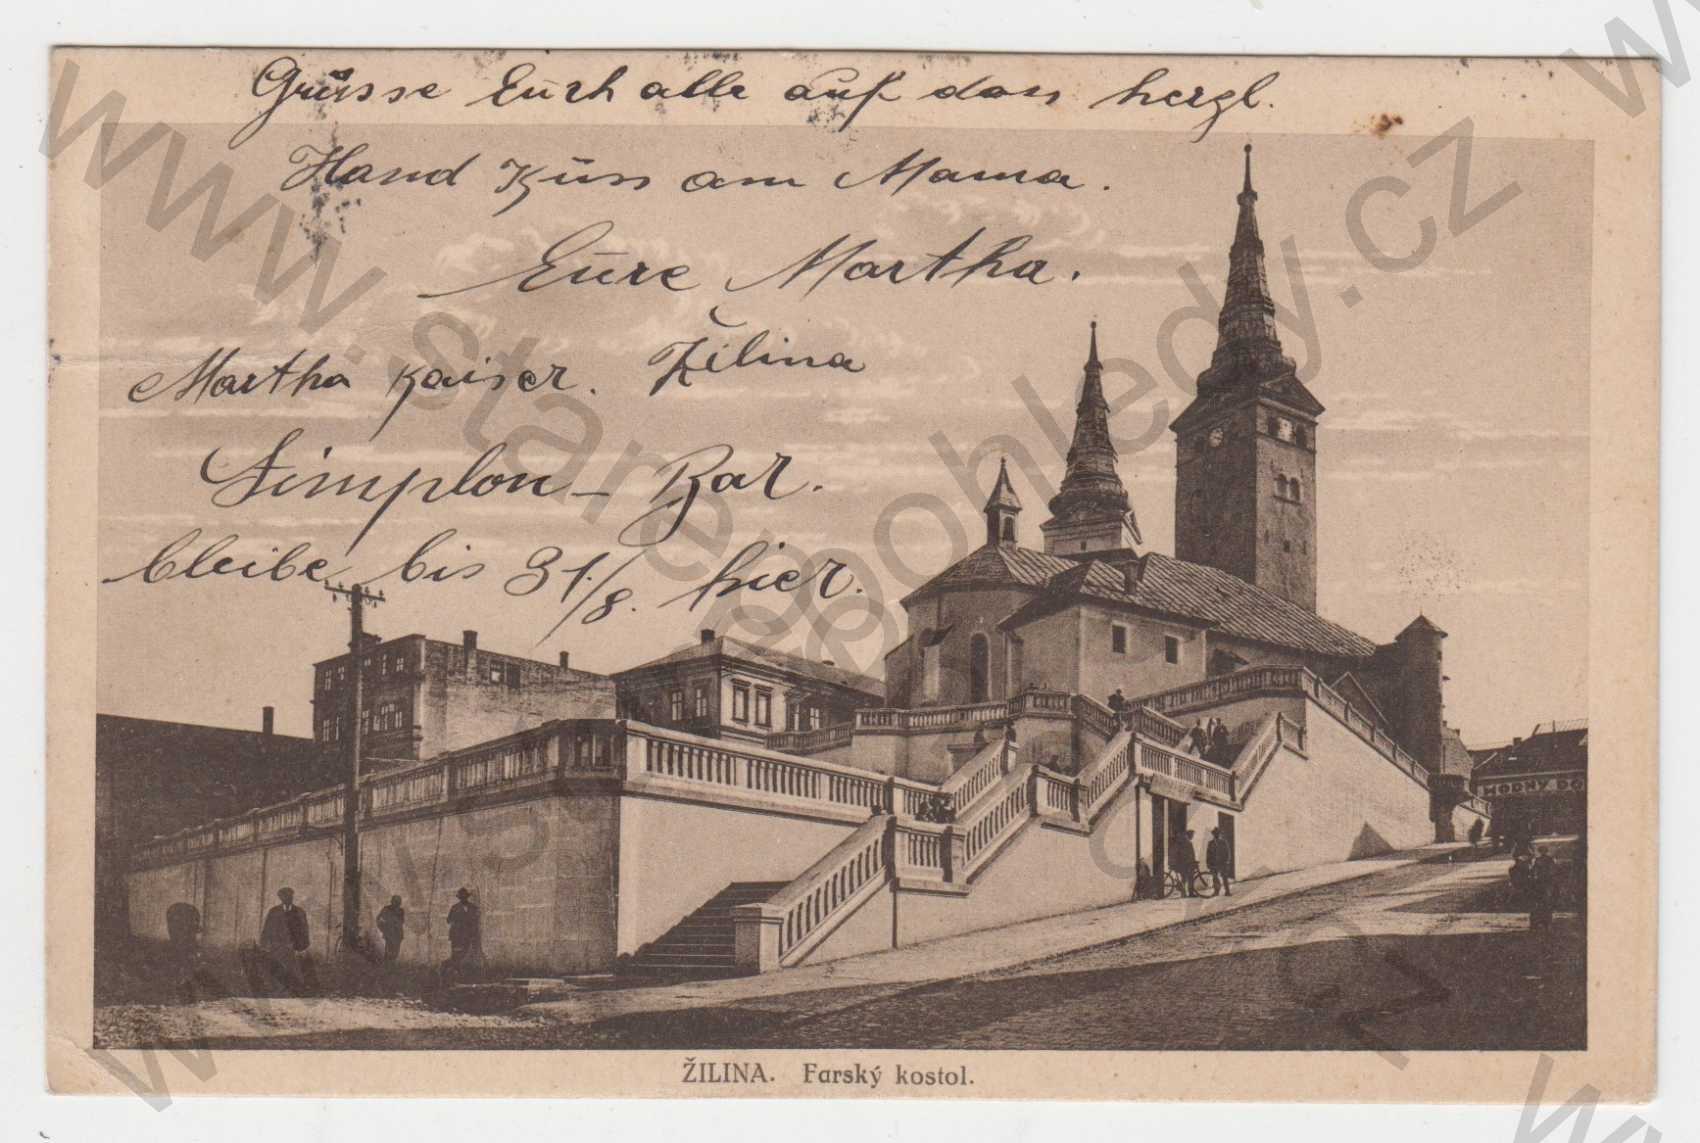 Grüsse Euch alle auf das herzl.
Hand Küss an Mama.
Eure Martha.
Martha Kaiser. Žilina
Simplon – Bar.
bleibe bis 31./8. hier.
MODNÝ DO
ŽILINA. Farský kostol.
www.starepohledy.cz